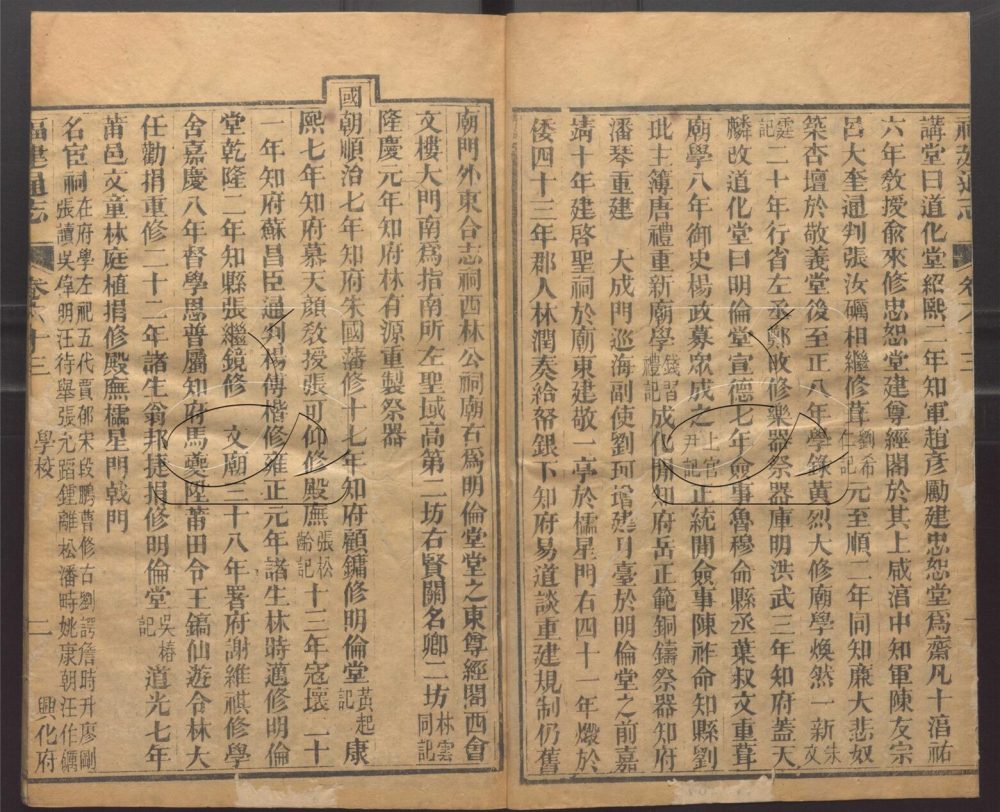 福建通志 卷六十三
講堂曰道化堂紹熙二年知軍趙彥勵建忠恕堂爲齋凡十湻祐
六年敎授兪來修忠恕堂建尊經閣於其上咸湻中知軍陳友宗
呂大奎通判張汝礪相繼修葺劉希仁記元至順二年同知廉大悲奴
築杏壇於敬義堂後至正八年學錄黃烈大修廟學煥然一新朱文
霆記二十年行省左丞鄭旼修樂器祭器庫明洪武三年知府蓋天
麟改道化堂曰明倫堂宣德七年僉事魯穆命縣丞葉叔文重葺
廟學八年御史楊政募眾成之上官尹記正統間僉事陳祚命知縣劉
玭主簿唐禮重新廟學錢習禮記成化間知府岳正範銅鑄祭器知府
潘琴重建 大成門巡海副使劉珂增建月臺於明倫堂之前嘉
靖十年建啓聖祠於廟東建敬一亭於櫺星門右四十一年燬於
倭四十三年郡人林潤奏給帑銀下知府易道談重建規制仍舊
廟門外東合志祠西林公祠廟右爲明倫堂堂之東尊經閣西會
文樓大門南爲指南所左聖域高第二坊右賢關名卿二坊林雲同記
隆慶元年知府林有源重製祭器
國朝順治七年知府朱國藩修十七年知府顧鏞修明倫堂黃起記康
熙七年知府慕天顏敎授張可仰修殿廡張松齡記十三年寇壞二十
一年知府蘇昌臣通判楊傳楷修雍正元年諸生林時邁修明倫
堂乾隆二年知縣張繼鏡修 文廟三十八年署府謝維祺修學
舍嘉慶八年督學恩普屬知府馬夔陞莆田令王鎬仙遊令林大
任勸捐重修二十二年諸生翁邦捷捐修明倫堂吳椿記 道光七年
莆邑文童林庭植捐修殿廡櫺星門戟門
名宦祠在府學左祀五代賈郁宋段鵬曹修古劉諤詹時升廖剛
張讀吳偉明汪待舉張允蹈鍾離松潘時姚康朝汪作礪
福建通志 卷六十三 學校 二 興化府